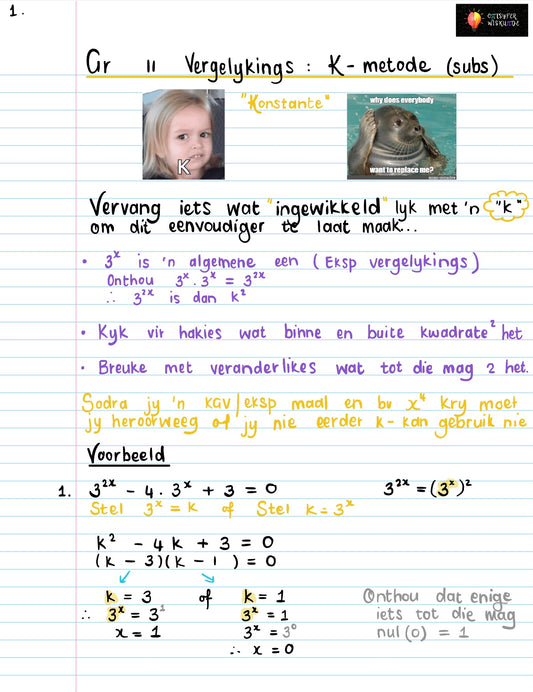 1.
ONTSYFER
WISKUNDE
Gr 11 Vergelykings : K-metode (subs)
"Konstante"
K
why does everybody
want to replace me?
Vervang iets wat "ingewikkeld" lyk met 'n "k"
om dit eenvoudiger te laat maak...
• 3ˣ is 'n algemene een (Eksp vergelykings)
Onthou 3ˣ · 3ˣ = 3²ˣ
∴ 3²ˣ is dan k²
• Kyk vir hakies wat binne en buite kwadrate² het
• Breuke met veranderlikes wat tot die mag 2 het.
Sodra jy 'n KGV/eksp maal en bv x⁴ kry moet
jy heroorweeg of jy nie eerder k-kan gebruik nie
Voorbeeld
1. 3²ˣ - 4 · 3ˣ + 3 = 0 3²ˣ = (3ˣ)²
Stel 3ˣ = k of Stel k = 3ˣ
k² - 4k + 3 = 0
(k - 3)(k - 1) = 0
k = 3 of k = 1 Onthou dat enige
∴ 3ˣ = 3¹ 3ˣ = 1 iets tot die mag
x = 1 3ˣ = 3⁰ nul (0) = 1
∴ x = 0